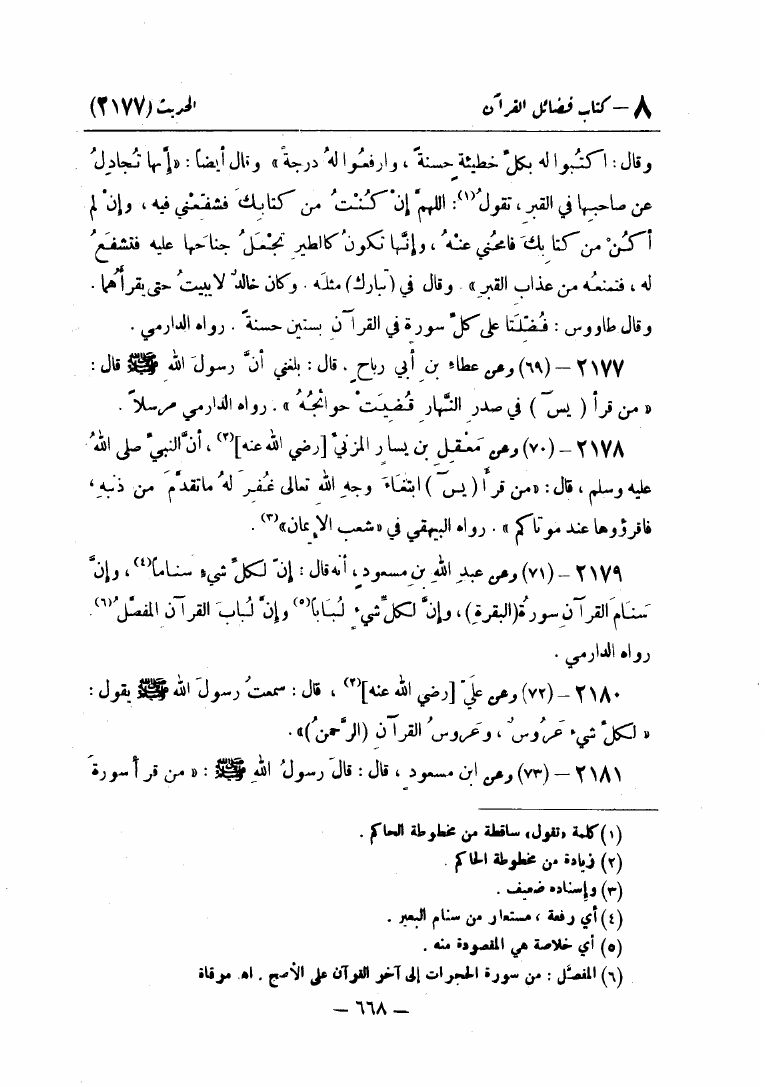 ٨ – كتاب فضائل القرآن الحديث (٢١٧٧)
وقال: اكتُبوا له بكلِّ خطيئةٍ حسنةً ، وارفعُوا لهُ درجةً» وقال أيضاً: «إنَّها تُجادِلُ
عن صاحبِها في القبرِ ، تقولُ(١): اللهمَّ إنْ كُنْتُ من كتابِكَ فشفِّعْني فيه ، وإنْ لم
أكُنْ من كتابِكَ فامحُني عنْهُ ، وإنَّها تكونُ كالطيرِ تجْعَلُ جناحَها عليه فتشفعُ
له ، فتمنعُه من عذابِ القبرِ» . وقال في (تبارك) مثلَه . وكان خالدٌ لا يبيتُ حتى يقرأَهُما .
وقال طاووس : فُضِّلَتا على كلِّ سورةٍ في القرآنِ بستين حسنةً . رواه الدارمي .
٢١٧٧ – (٦٩) وعن عطاءِ بنِ أبي رباحٍ ، قال : بلغني أنَّ رسولَ اللهِ ﷺ قال :
« من قرأ ( يس ) في صدرِ النَّهارِ قُضِيَتْ حوائجُهُ » . رواه الدارمي مرسلاً .
٢١٧٨ – (٧٠) وعن مَعْقِلِ بنِ يسارٍ المزنيِّ [رضي الله عنه](٢) ، أنَّ النبيَّ صلى اللهُ
عليه وسلم ، قال : «من قرأَ ( يس ) ابتغاءَ وجهِ اللهِ تعالى غُفِرَ لهُ ما تقدَّمَ من ذنبِهِ ،
فاقرؤوها عند موتاكم » . رواه البيهقي في «شعب الإيمان»(٣) .
٢١٧٩ – (٧١) وعن عبدِ اللهِ بنِ مسعودٍ ، أنه قال : إنَّ لكلِّ شيءٍ سَناماً(٤) ، وإنَّ
سَنامَ القرآنِ سورةُ (البقرةِ) ، وإنَّ لكلِّ شيءٍ لُباباً(٥) وإنَّ لُبابَ القرآنِ المفصَّلُ(٦) .
رواه الدارمي .
٢١٨٠ – (٧٢) وعن عليٍّ [رضي الله عنه](٢) ، قال : سمعتُ رسولَ اللهِ ﷺ يقول :
« لكلِّ شيءٍ عَرُوسٌ ، وعَروسُ القرآنِ (الرَّحمنُ)» .
٢١٨١ – (٧٣) وعن ابنِ مسعودٍ ، قال : قالَ رسولُ اللهِ ﷺ : « من قرأ سورةَ
(١) كلمة «تقول» ساقطة من مخطوطة الحاكم .
(٢) زيادة من مخطوطة الحاكم .
(٣) وإسناده ضعيف .
(٤) أي رفعة ، مستعار من سنام البعير .
(٥) أي خلاصة هي المقصودة منه .
(٦) المفصَّل : من سورة الحجرات إلى آخر القرآن على الأصح . اهـ مرقاة
– ٦٦٨ –